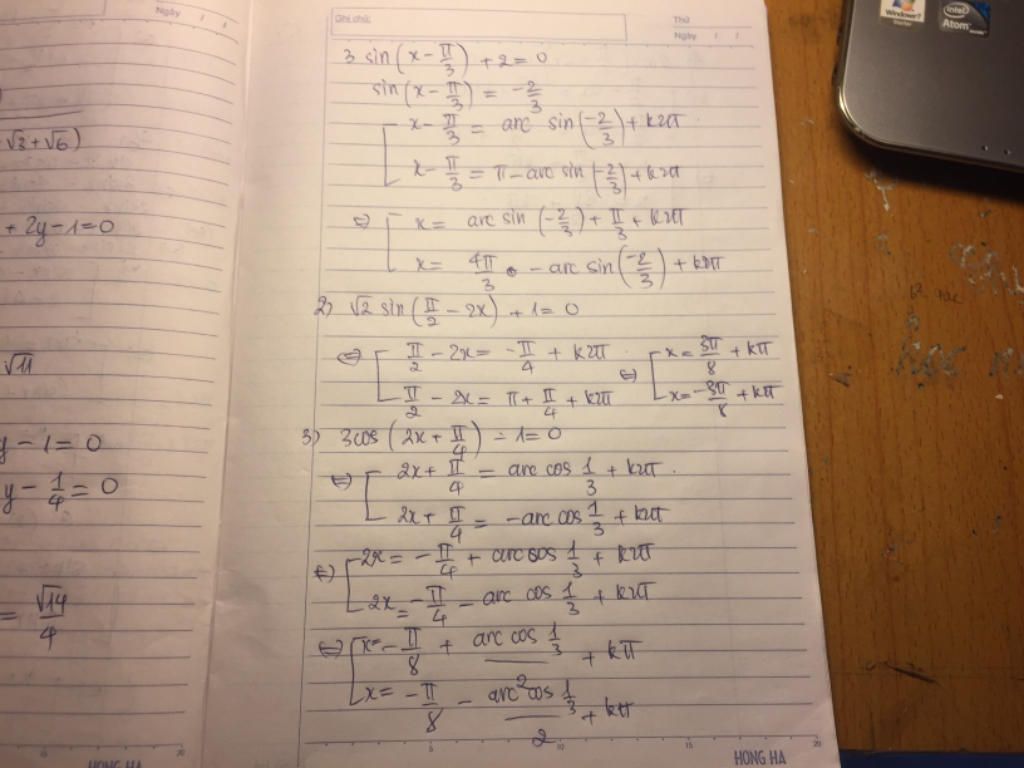 Ngày / /
√3 + √6)
+ 2y - 1 = 0
√11
y - 1 = 0
y - 1/4 = 0
= √14/4
HONG HA
Ghi chú:
Thứ
Ngày / /
3 sin(x - π/3) + 2 = 0
sin(x - π/3) = -2/3
[ x - π/3 = arc sin(-2/3) + k2π
x - π/3 = π - arc sin(-2/3) + k2π
⇔ [ x = arc sin(-2/3) + π/3 + k2π
x = 4π/3 - arc sin(-2/3) + k2π
2) √2 sin(π/2 - 2x) + 1 = 0
⇔ [ π/2 - 2x = -π/4 + k2π ⇔ [ x = 3π/8 + kπ
π/2 - 2x = π + π/4 + k2π x = -3π/8 + kπ
3) 3cos(2x + π/4) - 1 = 0
⇔ [ 2x + π/4 = arc cos 1/3 + k2π.
2x + π/4 = -arc cos 1/3 + k2π
⇔ [ 2x = -π/4 + arc cos 1/3 + k2π
2x = -π/4 - arc cos 1/3 + k2π
⇔ [ x = -π/8 + (arc cos 1/3)/2 + kπ
x = -π/8 - (arc cos 1/3)/2 + kπ
5 10 15 20
HONG HA
Windows 7
Starter
intel
Atom